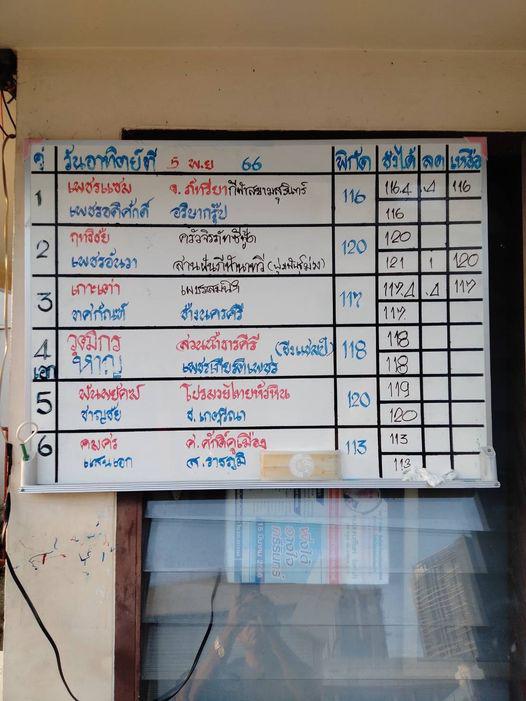 คู่ วันอาทิตย์ที่ 5 พ.ย 66 พิกัด ชั่งได้ ลด เหลือ
1 เพชรแซม จ.ภัทรียากีฬาสยามสุรินทร์ 116 116.4 .4 116
เพชรอดิศักดิ์ อริยากรุ๊ป 116
2 ฤทธิชัย ครัวจิรภัทซีฟู้ด 120 120
เพชรอันวา 121 1 120
3 เกาะเต่า เพชรสมนึก 117 117.4 .4 117
ทศกัณฑ์ ช้างนครศรี 117
4 วุฒิกร สวนน้ำธารคีรี (ชิงแชมป์) 118 118
เอก หาญ เพชรเกียรติเพชร 118
5 พันพยัคฆ์ โปรมวยไทยหัวหิน 120 119
ชาญชัย 120
6 คมศร ศ.ศักดิ์คูเมือง 113 113
แสนเอก ส.ราชภูมิ 113